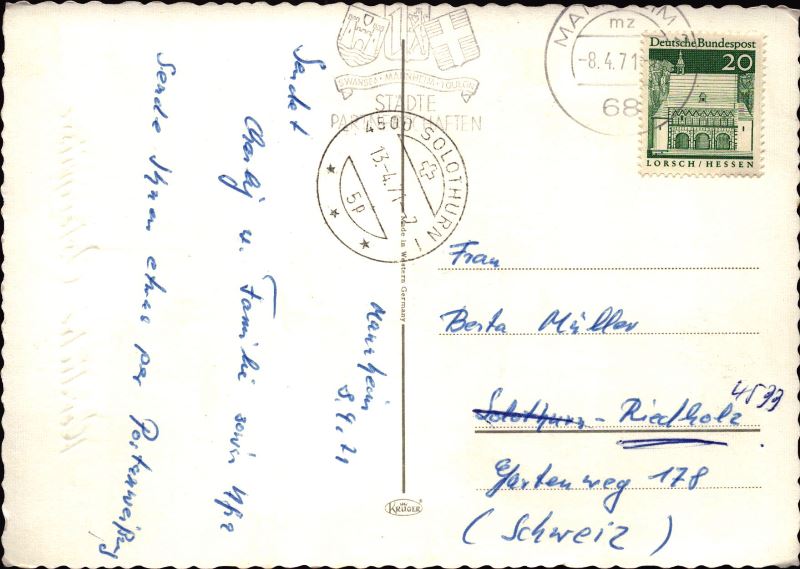 SWANSEA · MANNHEIM · TOULON
STÄDTE
PARTNERSCHAFTEN
MANNHEIM
mz
-8.4.71-
68
Deutsche Bundespost
20
LORSCH / HESSEN
4500 SOLOTHURN 1
13.-4.71-7
5p
Sendet
u. Familie sowie
Sende Ihnen etwas per
Mannheim
8.4.71
Made in Western Germany
KRÜGER
Frau
Berta Müller
Solothurn - Riedholz 4533
Gartenweg 178
(Schweiz)